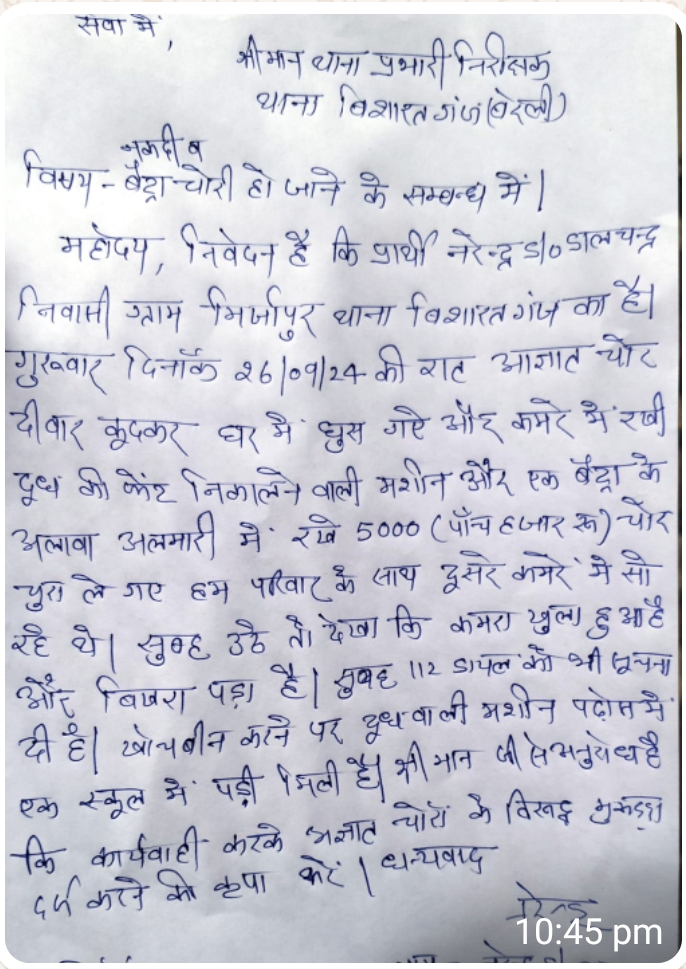 सेवा में,
श्रीमान थाना प्रभारी निरीक्षक
थाना विशारतगंज (बरेली)
नकदी व
विषय - बैट्रा चोरी हो जाने के सम्बन्ध में।
महोदय, निवेदन है कि प्रार्थी नरेन्द्र S/o डालचन्द्र
निवासी ग्राम मिर्जापुर थाना विशारतगंज का है।
गुरूवार दिनाँक 26/09/24 की रात अज्ञात चोर
दीवार कूदकर घर में घुस गऐ और कमरे में रखी
दूध की फेंट निकालने वाली मशीन और एक बैट्रा के
अलावा अलमारी में रखे 5000 (पाँच हजार रू) चोर
चुरा ले गए हम परिवार के साथ दूसरे कमरे में सो
रहे थे। सुबह उठे तो देखा कि कमरा खुला हुआ है
और बिखरा पड़ा है। सुबह 112 डायल को भी सूचना
दी है। खोजबीन करने पर दूध वाली मशीन पड़ोस में
एक स्कूल में पड़ी मिली है। श्री मान जी से अनुरोध है
कि कार्यवाही करके अज्ञात चोरों के विरूद्ध मुकद्दमा
दर्ज करने की कृपा करें। धन्यवाद
नरेन्द्र
10:45 pm